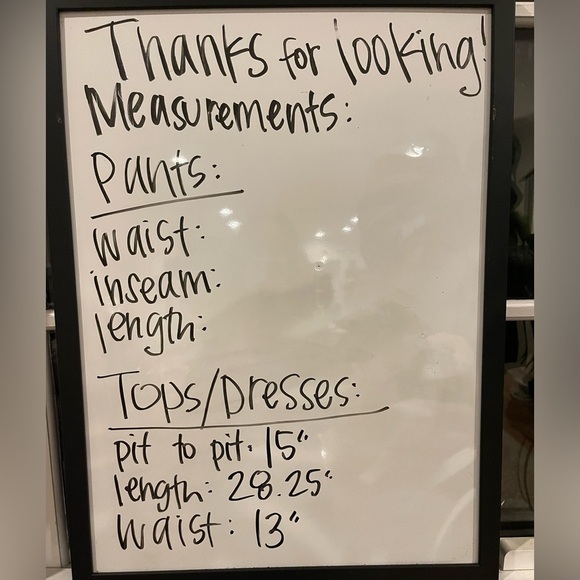 Thanks for looking!
Measurements:
Pants:
waist:
inseam:
length:
Tops/Dresses:
pit to pit: 15"
length: 28.25"
waist: 13"